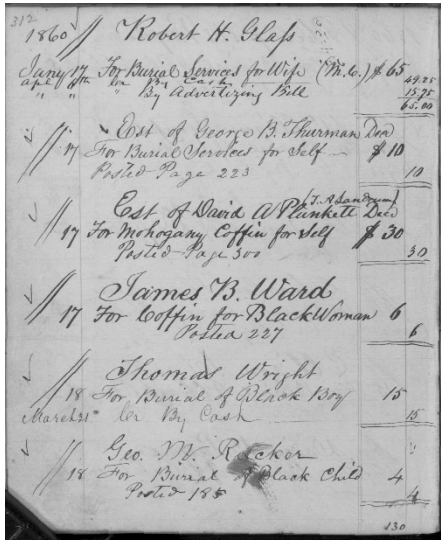 312
1860 Robert H. Glass
Jany 17 For Burial Services for Wife (M.C.) $65
Apl 9th Cr By Cash 49.25
" " " By Advertizing Bill 15.75
65.00
Est of George B. Thurman Decd
17 For Burial Services for Self $10
Posted Page 223 10
(T. A. Landrum)
Est of David A Plunkett Decd
17 For Mohogany Coffin for Self $30
Posted Page 300 30
James B. Ward
17 For Coffin for Black Woman 6
Posted 227 6
Thomas Wright
18 For Burial of Black Boy 15
March 21st Cr By Cash 15
Geo. W. Rucker
18 For Burial of Black Child 4
Posted 185 4
130